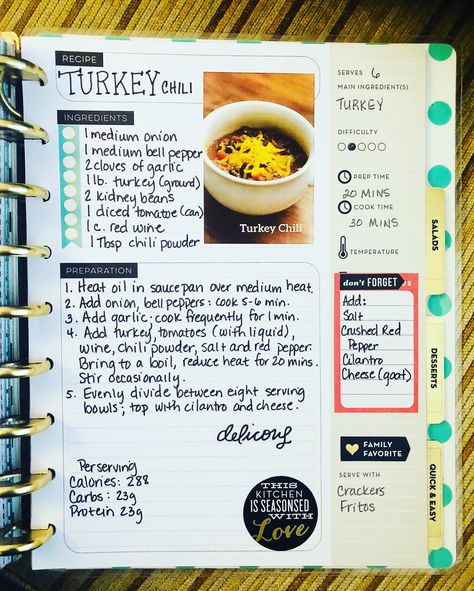 RECIPE
TURKEY CHILI
INGREDIENTS
1 medium onion
1 medium bell pepper
2 cloves of garlic
1 lb. turkey (ground)
2 kidney beans
1 diced tomatoe (can)
1 c. red wine
1 Tbsp chili powder
Turkey Chili
PREPARATION
1. Heat oil in saucepan over medium heat.
2. Add onion, bell peppers: cook 5-6 min.
3. Add garlic - cook frequently for 1 min.
4. Add turkey, tomatoes (with liquid),
wine, chili powder, salt and red pepper.
Bring to a boil, reduce heat for 20 mins.
Stir occasionally.
5. Evenly divide between eight serving
bowls; top with cilantro and cheese.
delicious
Perserving
Calories: 288
Carbs: 23g
Protein 23g
THIS
KITCHEN
IS SEASONED
WITH
Love
SERVES 6
MAIN INGREDIENT(S)
TURKEY
DIFFICULTY
PREP TIME
20 MINS
COOK TIME
30 MINS
TEMPERATURE
don't FORGET
Add:
Salt
Crushed Red
Pepper
Cilantro
Cheese (goat)
FAMILY
FAVORITE
SERVE WITH
Crackers
Fritos
SALADS
DESSERTS
QUICK & EASY